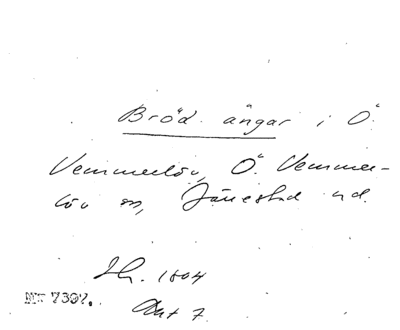 Bröd ängar i Ö.
Vemmerlöv, Ö. Vemmer-
löv sn, Järrestad hd.
Lh. 1804
NT 7392.
Akt 7